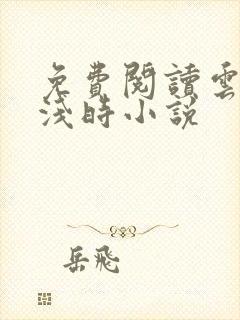 免費閱讀雲
淺時小說
岳飛